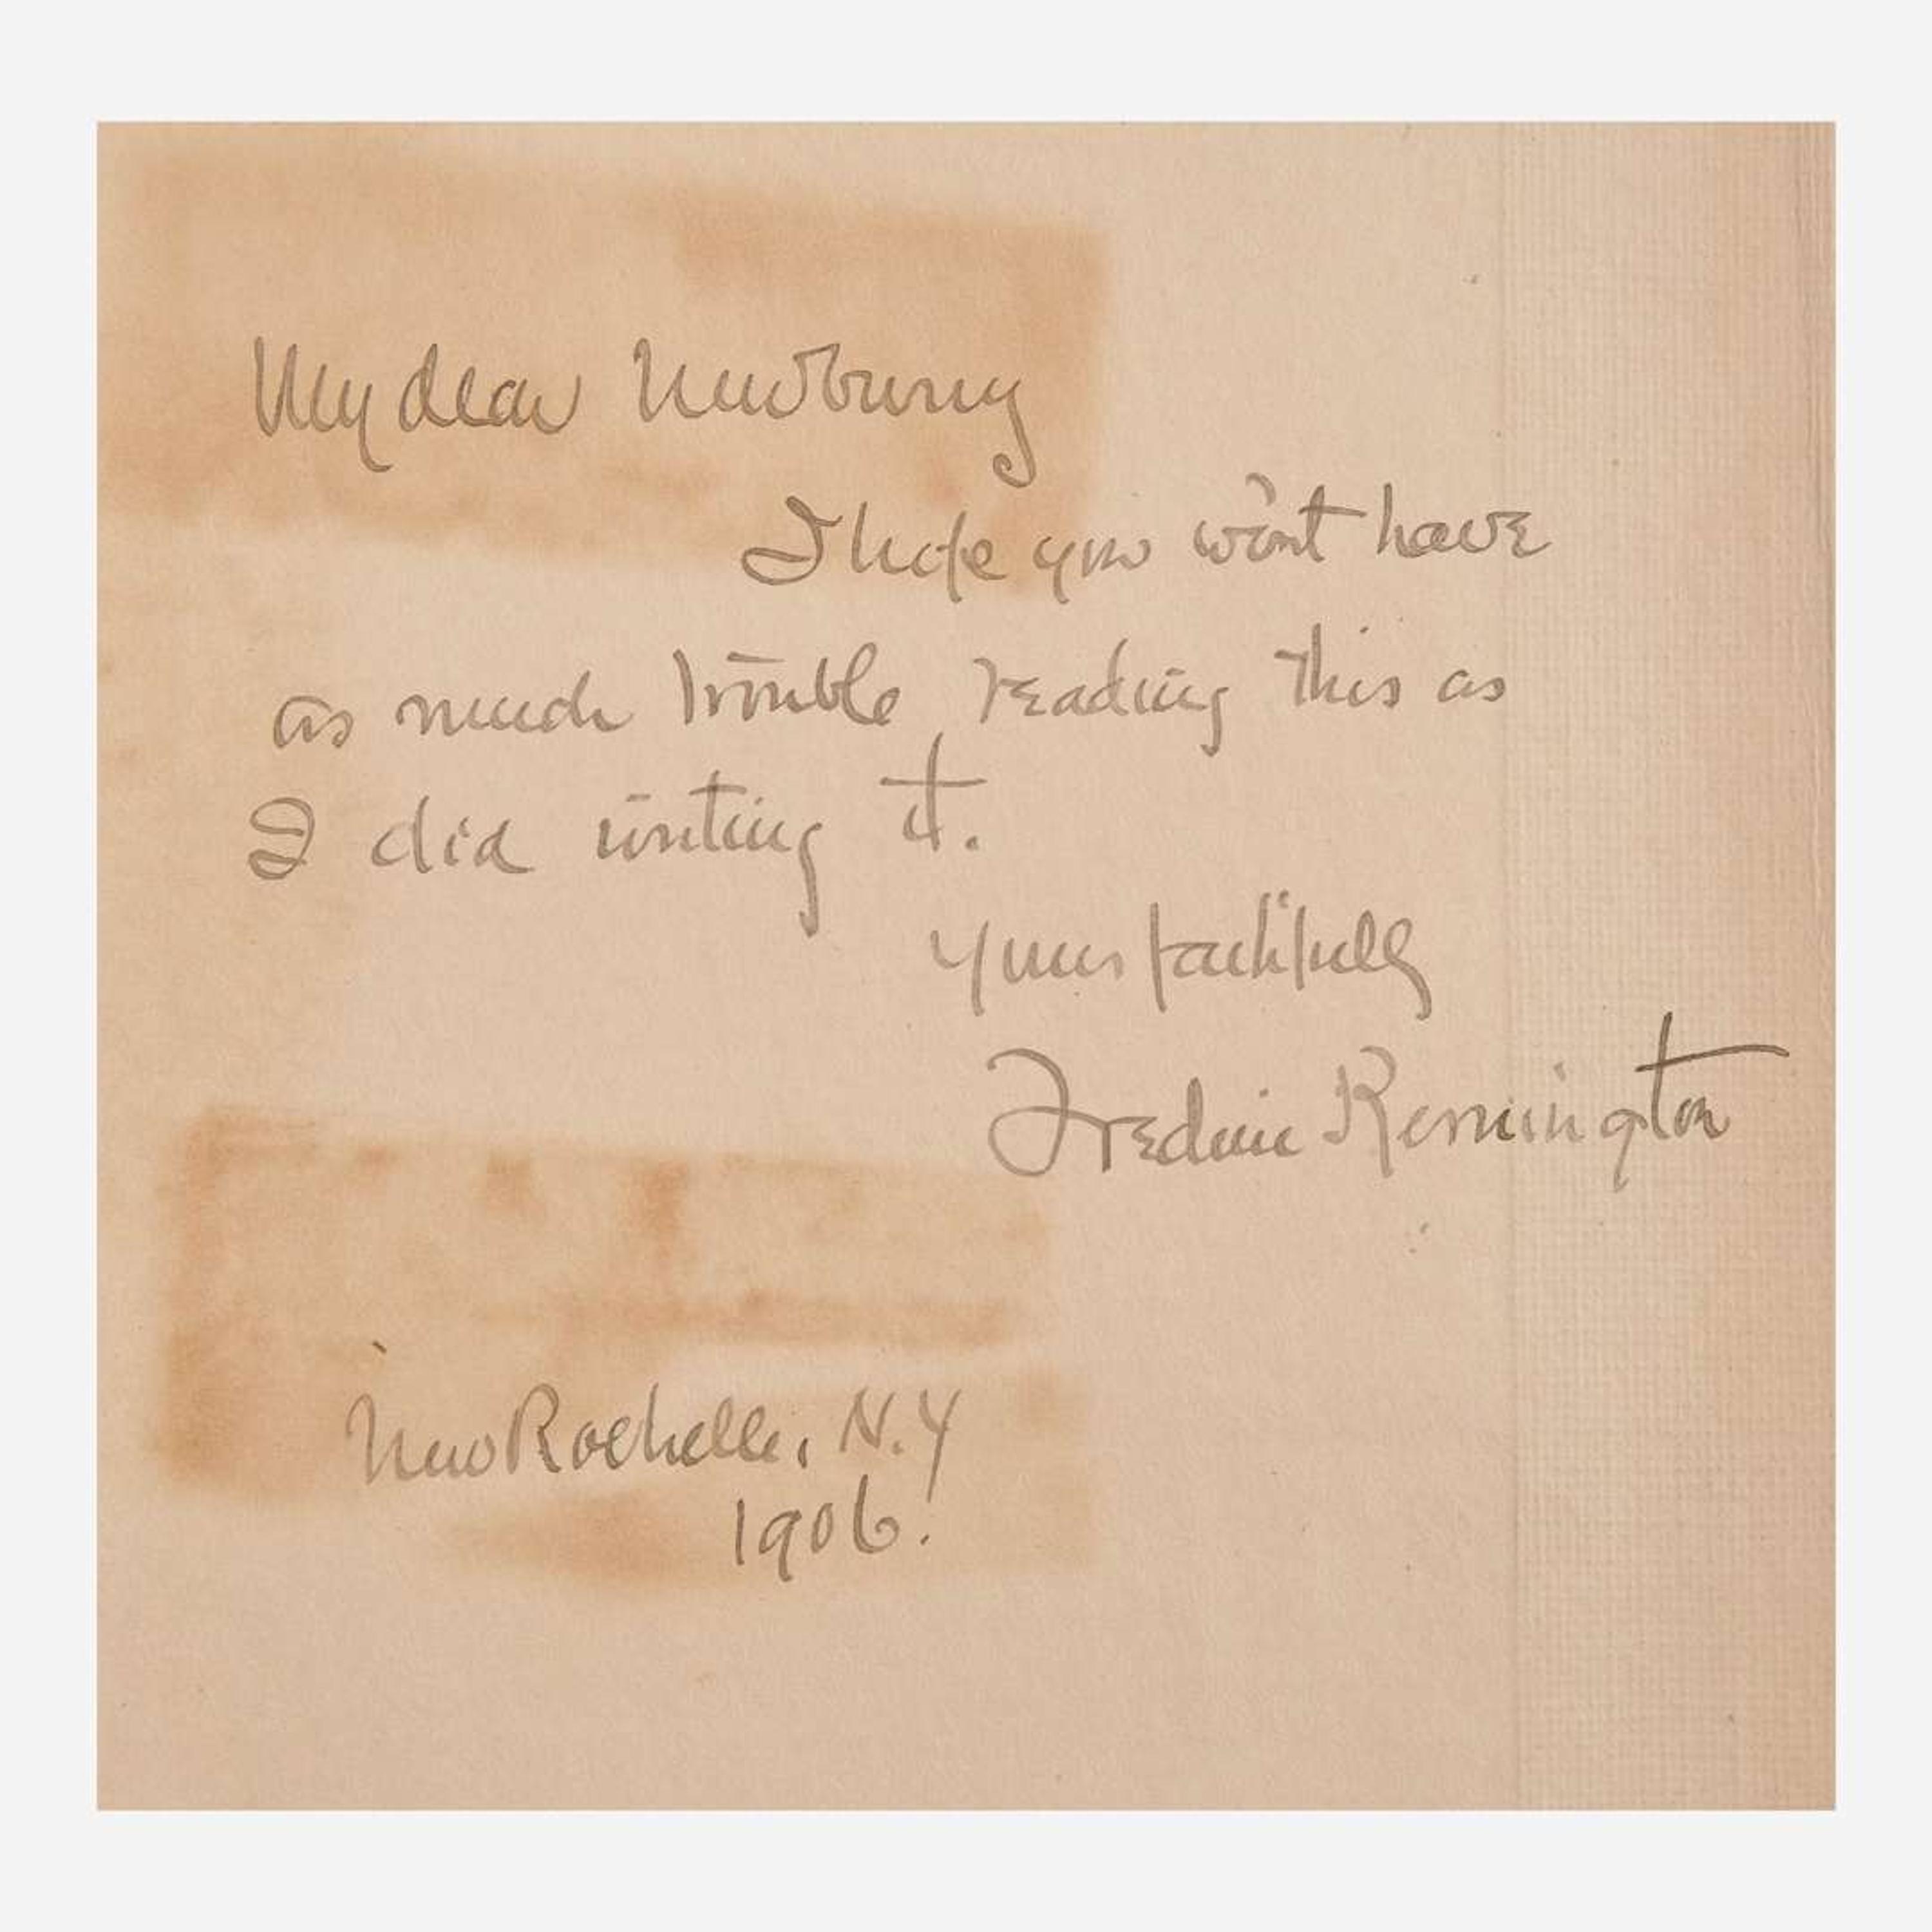 My dear Newburry
I hope you won't have
as much trouble reading this as
I did writing it.
Yours faithfully
Frederic Remington
New Rochelle, N.Y
1906.